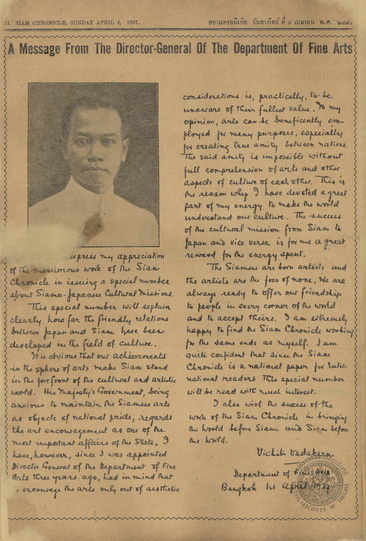 14 SIAM CHRONICLE, SUNDAY APRIL 4, 1937.
สยามครอนิเกิล วันอาทิตย์ ที่ ๔ เมษายน พ.ศ.
A Message From The Director-General Of The Department Of Fine Arts
express my appreciation
of the meritorious work of the Siam
Chronicle in issuing a special number
about Siamo-Japanese Cultural Missions
This special number will explain
clearly how far the friendly relations
between Japan and Siam have been
developed in the field of culture.
It is obvious that our achievements
in the sphere of arts make Siam stand
in the forefront of the cultural and artistic
world. His Majesty's Government, being
anxious to maintain the Siamese arts
as objects of national pride, regards
the art encouragement as one of the
most important affairs of the State. I
have, however, since I was appointed
Director General of the Department of Fine
Arts three years ago, had in mind that
encourage the arts only out of aesthetic
considerations is, practically, to be
unaware of their fullest value. In my
opinion, arts can be beneficently em-
ployed for many purposes, especially
for creating true amity between nations.
The said amity is impossible without
full comprehension of arts and other
aspects of culture of each other. This is
the reason why I have devoted a great
part of my energy to make the world
understand our culture. The success
of the cultural mission from Siam to
Japan and vice versa, is for me a great
reward for the energy spent.
The Siamese are born artists and
the artists are the foes of none. We are
always ready to offer our friendship
to people in every corner of the world
and to accept theirs. I am extremely
happy to find the Siam Chronicle working
for the same ends as myself. I am
quite confident that since the Siam
Chronicle is a national paper for inter-
national readers this special number
will be read with much interest.
I also wish the success of the
work of the Siam Chronicle in bringing
the world before Siam and Siam before
the world.
Vichitr Vadakarn
Department of Fine Arts
Bangkok 1st April 1937